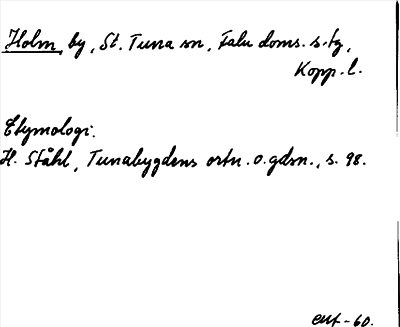 Holm, by, St. Tuna sn, Falu doms. s. tg,
Kopp. l.
Etymologi.
H. Ståhl, Tunabygdens ortn. o. gdsn., s. 98.
-60.